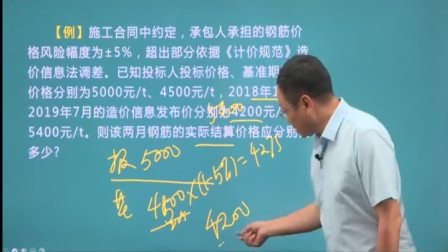 【例】施工合同中约定，承包人承担的钢筋价
格风险幅度为±5%，超出部分依据《计价规范》造
价信息法调差。已知投标人投标价格、基准期
价格分别为5000元/t、4500元/t，2018年1
2019年7月的造价信息发布价分别为4200元/
5400元/t。则该两月钢筋的实际结算价格应分别
多少？
报 5000
4500×(1-5%)=4275
4200